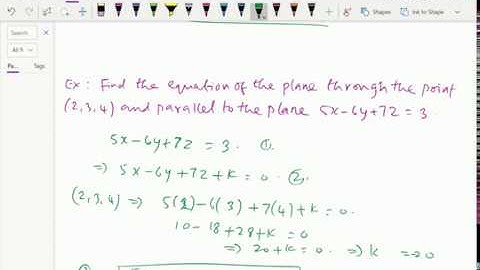 Shapes Ink to Shape
Search
All
Pa... Tags
Ex: Find the equation of the plane through the point
(2,3,4) and parallel to the plane 5x-6y+7z = 3.
5x-6y+7z = 3. ①.
⇒ 5x-6y+7z+k=0. ②.
(2,3,4) ⇒ 5(2)-6(3)+7(4)+k=0.
10-18+28+k=0
⇒ 20+k=0. ⇒ k =-20